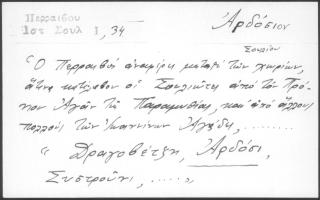 Περραιβου
Ιστ Σουλ Ι, 34
Ἀρδόσιον
Σουλίου
Ὁ Περραιβὸς ἀναφέρει μεταξὺ τῶν χωρίων,
ἅτινα κατέσχον οἱ Σουλιῶται ἀπὸ τὸν Πρό-
νον Ἀγᾶν τῆς Παραμυθίας, καὶ ἀπὸ ἄλλους
πολλοὺς τῶν Ἰωαννίνων Ἀγάδες, ........
" Δραγοβέτζη, Ἀρδόσι,
Συστροῦνι, .....,,